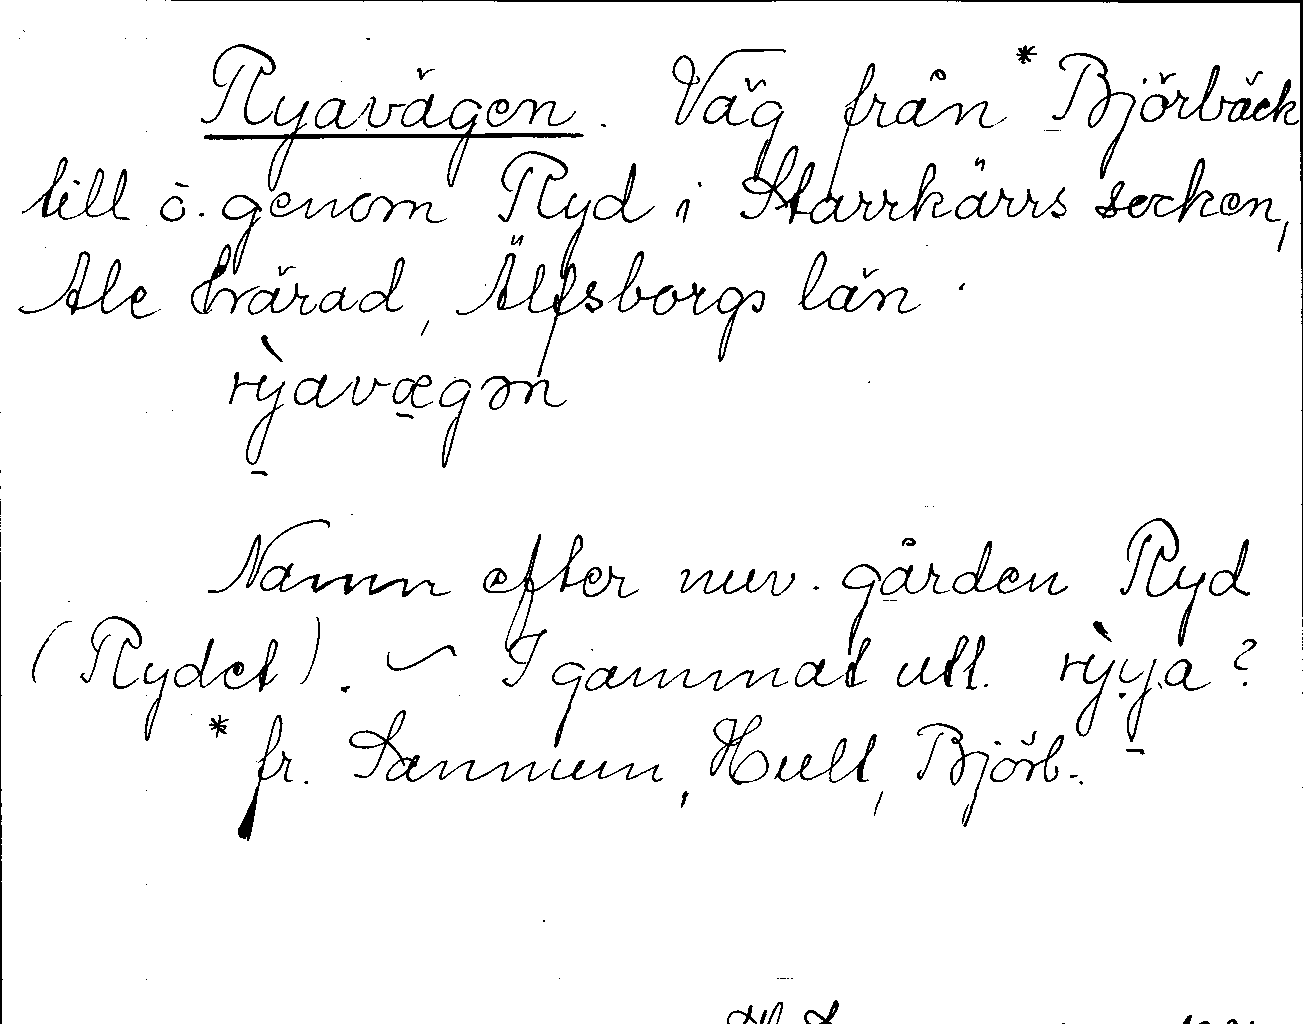 Ryavägen. Väg från *Björbäck
till ö. genom Ryd i Starrkärrs socken,
Ale härad, Älfsborgs län.
rỳavæ̠gən
Namn efter nuv. gården Ryd
(Rydet). — I gammat utt. rỳya?
* fr. Sannum, Hult, Björb.